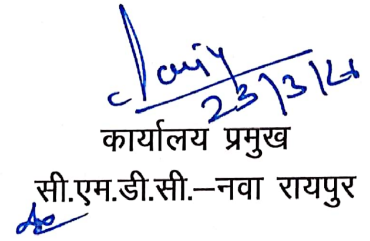 23/3/26
कार्यालय प्रमुख
सी.एम.डी.सी.–नवा रायपुर